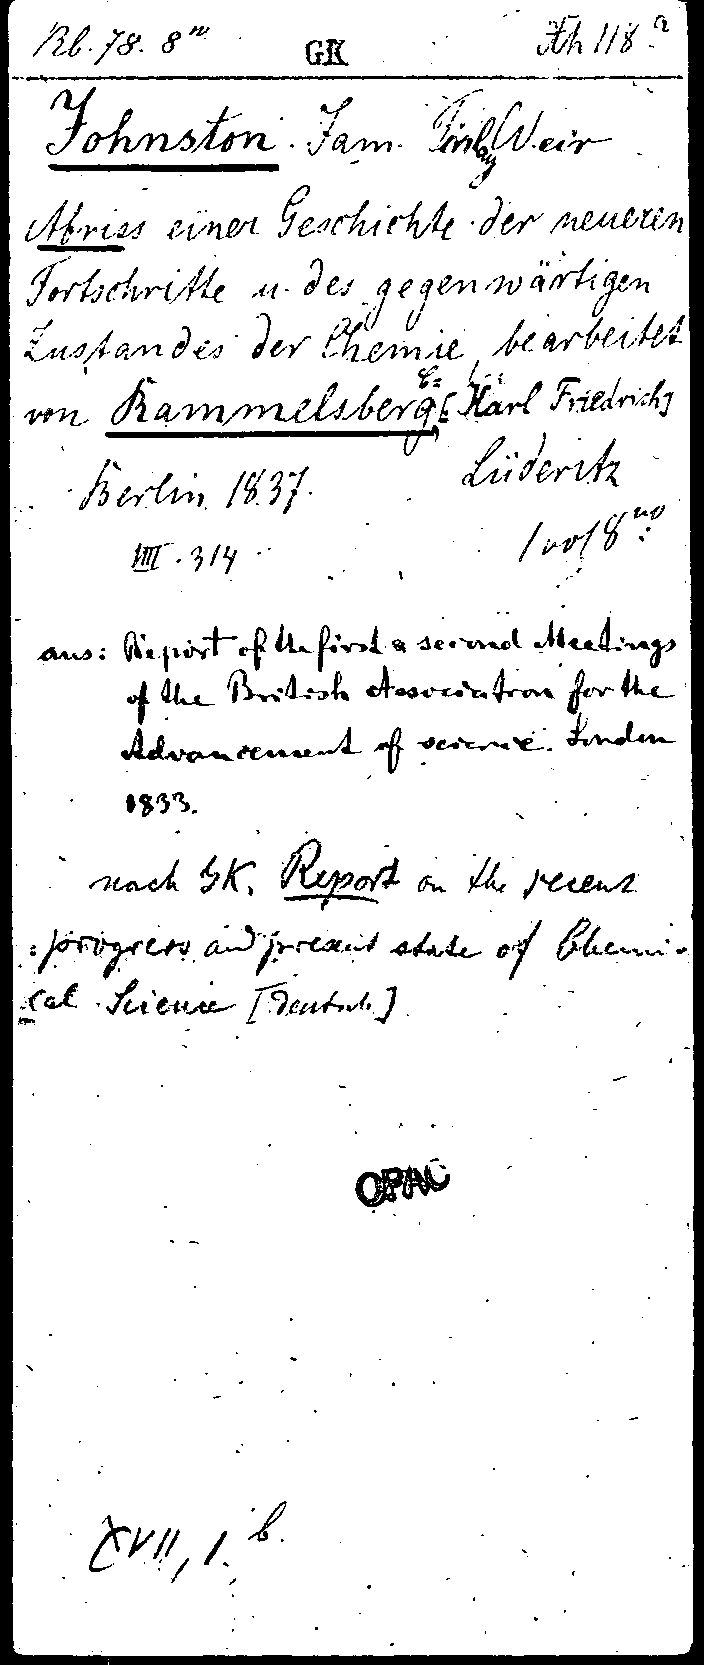 Rb. 78. 8ᵐ GK Fh 118.ᵃ
Johnston. Jam. Finlay Weir
Abriss einer Geschichte der neueren
Fortschritte u. des gegenwärtigen
Zustandes der Chemie, bearbeitet
von Rammelsberg, C= [Karl Friedrich]
Berlin 1837. Lüderitz
IIII. 314 1 vol 8ᵛᵒ.
aus: Report of the first & second Meetings
of the British Association for the
Advancement of science. London
1833.
nach GK. Report on the recent
progress and present state of Chemi-
cal Science [Deutsch.]
OPAC
XVII, 1. b.